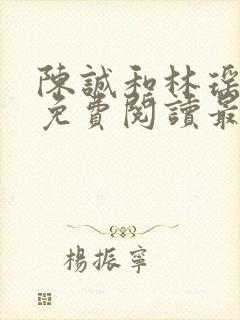 陳誠和林瑤
免費閱讀最
楊振寧